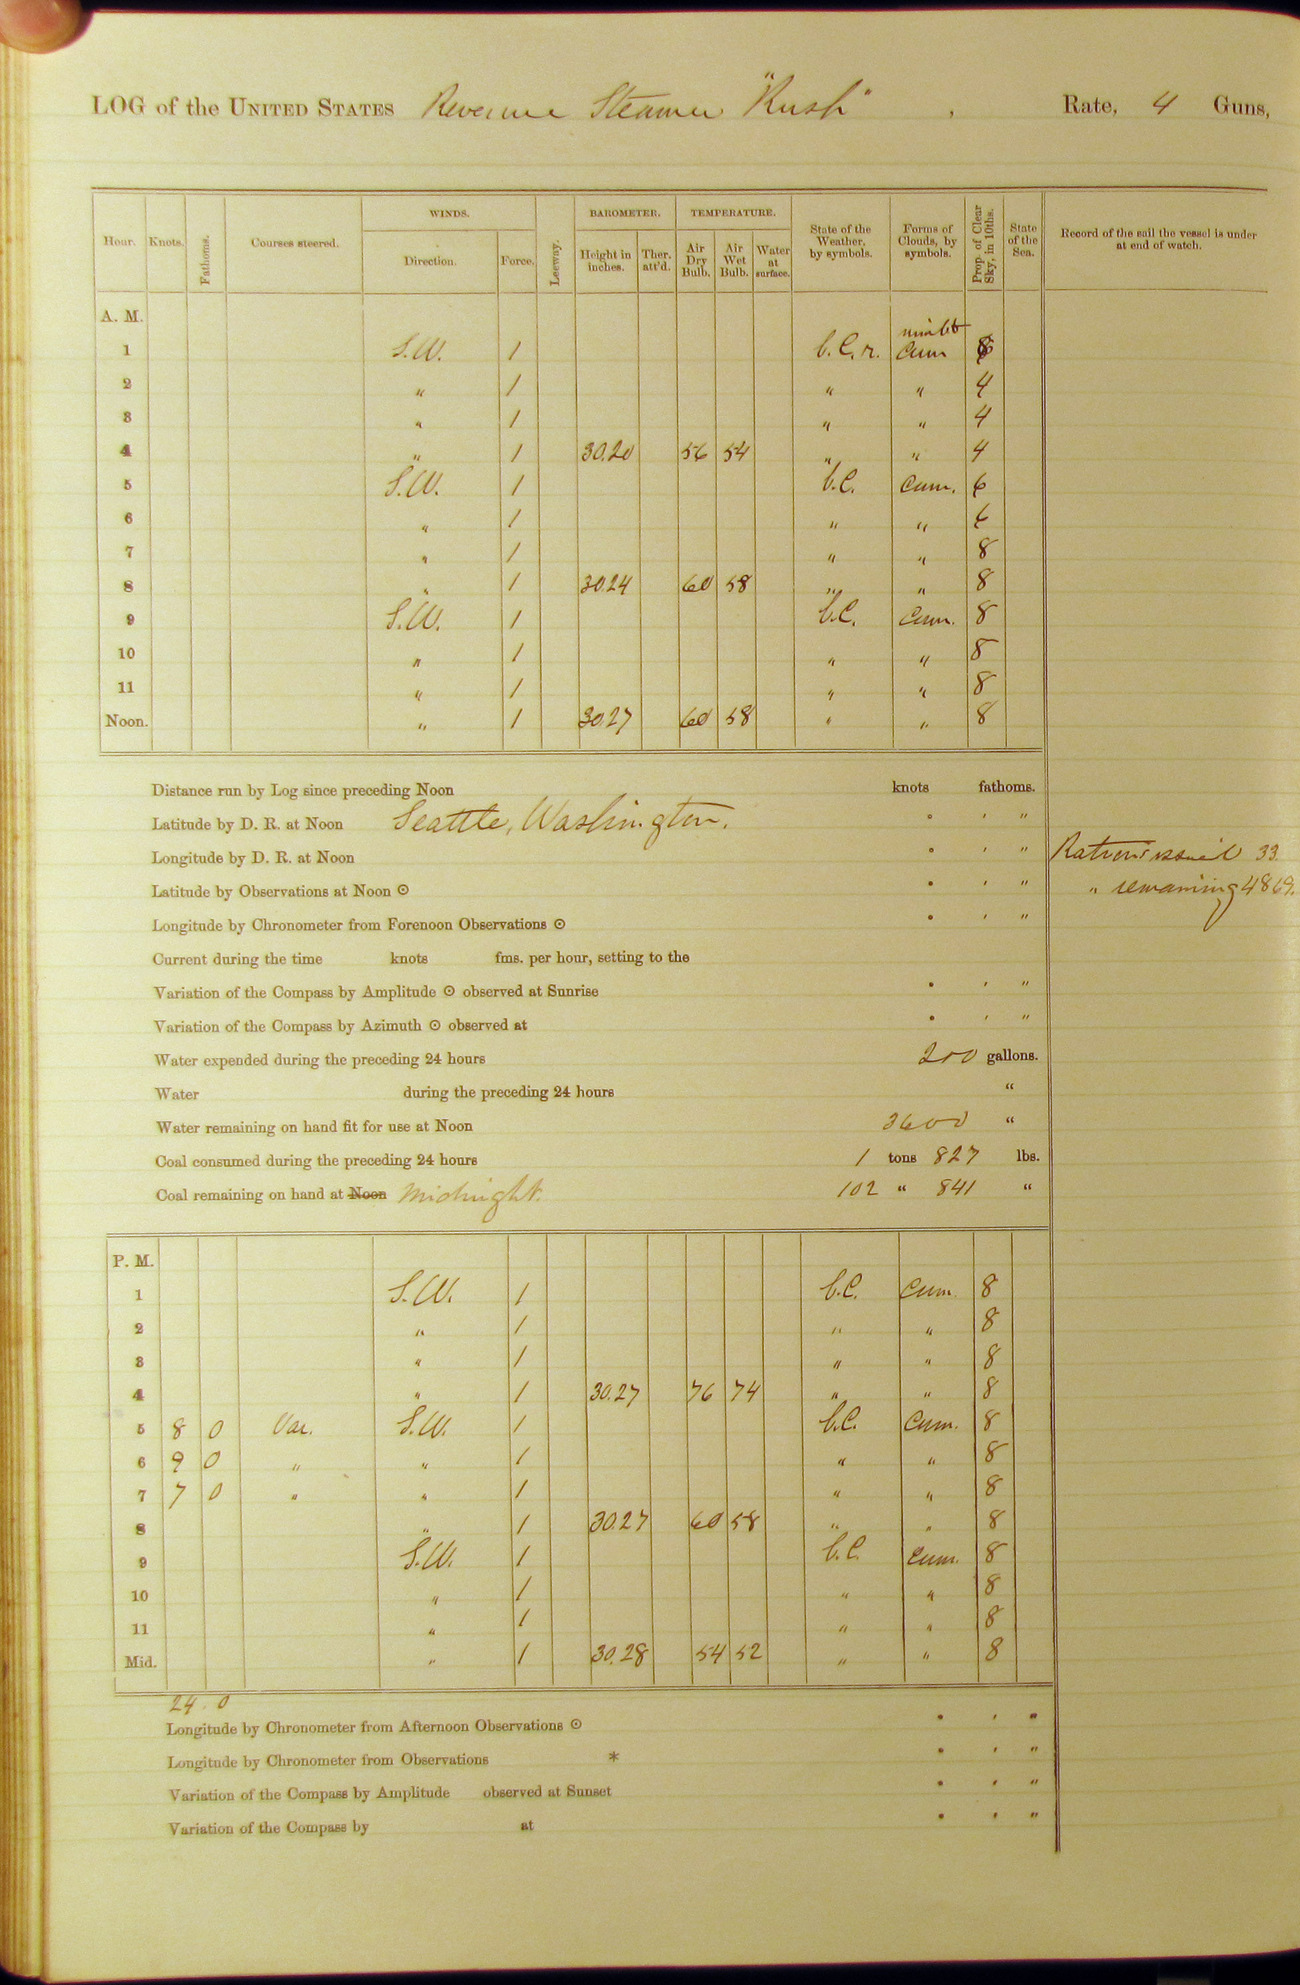 LOG of the UNITED STATES Revenue Steamer "Rush", Rate, 4 Guns,
WINDS. BAROMETER. TEMPERATURE.
Hour. Knots. Fathoms. Courses steered. Direction. Force. Leeway. Height in inches. Ther. att'd. Air Dry Bulb. Air Wet Bulb. Water at surface. State of the Weather, by symbols. Forms of Clouds, by symbols. Prop. of Clear Sky, in 10ths. State of the Sea. Record of the sail the vessel is under at end of watch.
A. M.
1 S.W. 1 b.c.r. Cum
2 " 1 " " 4
3 " 1 " " 4
4 " 1 30.20 56 54 " " 4
5 S.W. 1 b.c. Cum. 6
6 " 1 " " 6
7 " 1 " " 8
8 " 1 30.24 60 58 " " 8
9 S.W. 1 b.c. Cum. 8
10 " 1 " " 8
11 " 1 " " 8
Noon. " 1 30.27 60 58 " " 8
Distance run by Log since preceding Noon knots fathoms.
Latitude by D. R. at Noon Seattle, Washington. ° ′ ″
Longitude by D. R. at Noon ° ′ ″ Rations issued 33.
Latitude by Observations at Noon ⊙ ° ′ ″ " remaining 4869.
Longitude by Chronometer from Forenoon Observations ⊙ ° ′ ″
Current during the time knots fms. per hour, setting to the
Variation of the Compass by Amplitude ⊙ observed at Sunrise ° ′ ″
Variation of the Compass by Azimuth ⊙ observed at ° ′ ″
Water expended during the preceding 24 hours 200 gallons.
Water during the preceding 24 hours "
Water remaining on hand fit for use at Noon 3600 "
Coal consumed during the preceding 24 hours 1 tons 827 lbs.
Coal remaining on hand at Noon Midnight. 102 " 841 "
P. M.
1 S.W. 1 b.c. Cum. 8
2 " 1 " " 8
3 " 1 " " 8
4 " 1 30.27 76 74 " " 8
5 8 0 Var. S.W. 1 b.c. Cum. 8
6 9 0 " " 1 " " 8
7 7 0 " " 1 " " 8
8 " 1 30.27 60 58 " " 8
9 S.W. 1 b.c. Cum. 8
10 " 1 " " 8
11 " 1 " " 8
Mid. " 1 30.28 54 52 " " 8
24.0
Longitude by Chronometer from Afternoon Observations ⊙ ° ′ ″
Longitude by Chronometer from Observations * ° ′ ″
Variation of the Compass by Amplitude observed at Sunset ° ′ ″
Variation of the Compass by at ° ′ ″